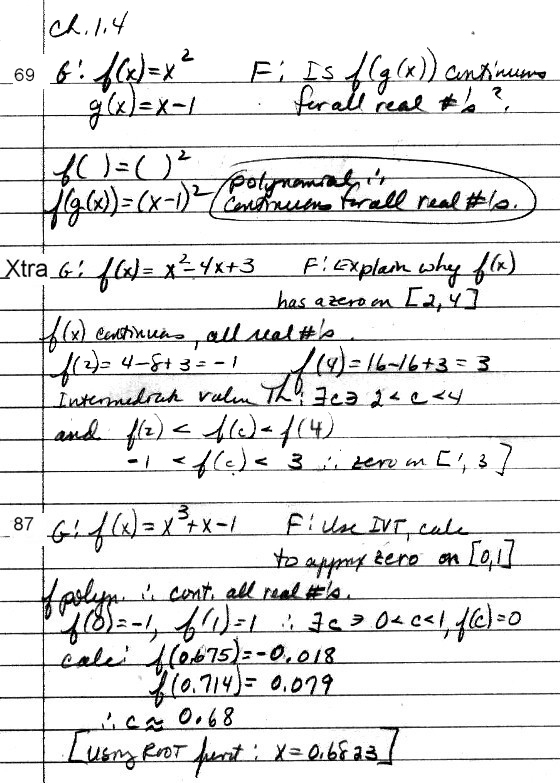 ch. 1.4
69 G: f(x)=x² F: Is f(g(x)) continuous
g(x)=x-1 for all real #'s?
f( )=( )²
f(g(x))=(x-1)² polynomial ∴
continuous for all real #'s.
Xtra G: f(x)= x²-4x+3 F: Explain why f(x)
has a zero on [2,4]
f(x) continuous, all real #'s.
f(2)= 4-8+3=-1 f(4)=16-16+3=3
Intermediate value Th: ∃c∋ 2<c<4
and f(2) < f(c) < f(4)
-1 < f(c) < 3 ∴ zero on [ , 3]
87 G: f(x)=x³+x-1 F: Use IVT, calc
to approx zero on [0,1]
f polyn. ∴ cont. all real #'s.
f(0)=-1, f(1)=1 ∴ ∃c∋ 0<c<1, f(c)=0
calc: f(0.675)=-0.018
f(0.714)= 0.079
∴ c≈ 0.68
[Using ROOT : x=0.6823]